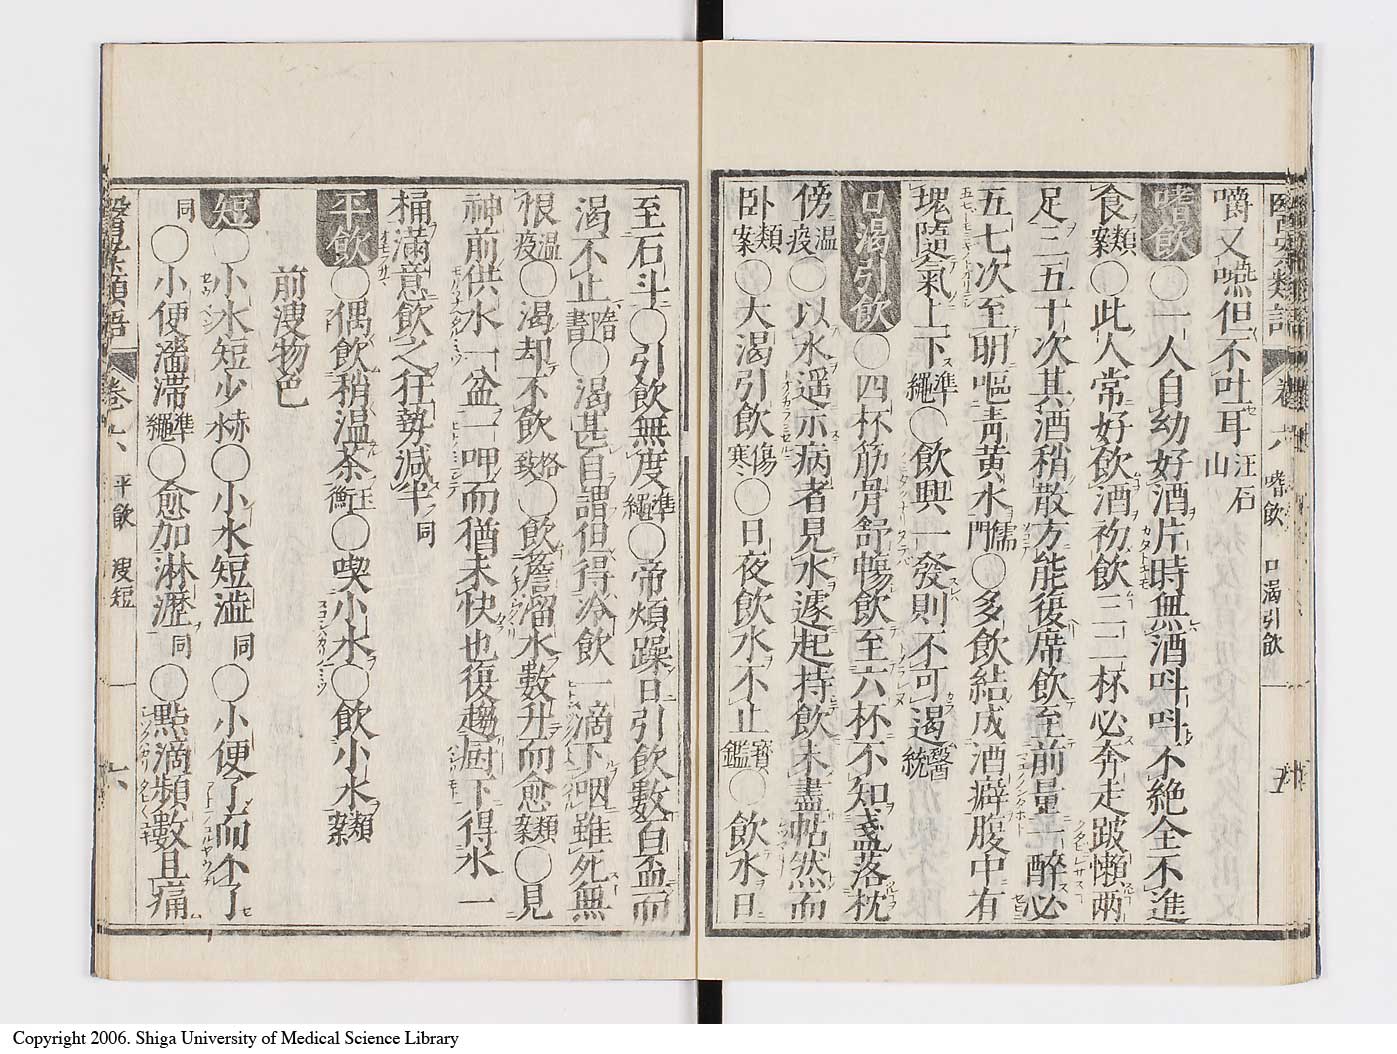 醫案類語 卷六 嗜飲 口渴引飲 五
嚼又嚥但不吐耳 汪石山
嗜飲 ○一人自幼好酒片時無酒叫呌不絶全不進
食 類案 ○此人常好飲酒初飲三二杯必奔走跛懶兩
足三五十次其酒稍散方能復席飲至前量一醉必
五七次至明嘔青黃水 儒門 ○多飲結成酒癖腹中有
塊隨氣上下 準繩 ○飲興一發則不可遏 醫統
口渴引飲 ○四杯筋骨舒暢飲至六杯不知盞落枕
傍 溫疫 ○以水遥示病者見水遽起持飲未盡帖然而
卧 類案 ○大渴引飲 傷寒 ○日夜飲水不止 寶鑑 ○飲水日
至石斗 ○引飲無度 準繩 ○帝煩躁日引飲數百盃而
渴不止 隋書 ○渴甚自謂但得冷飲一滴下咽雖死無
恨 溫疫 ○渴却不飲 格致 ○飲簷溜水數升而愈 類案 ○見
神前供水一盆一呷而猶未快也復趨厨下得水一
桶滿意飲之狂勢減半 同
平飲 ○偶飲稍溫茶 王衡 ○喫小水 ○飲小水 類案
前溲物色
短 ○小水短少赫赤 ○小水短澁 同 ○小便了而不了
同 ○小便濇滯 準繩 ○愈加淋瀝 同 ○點滴頻數且痛
醫案類語 卷六 平飲 溲短 六
Copyright 2006. Shiga University of Medical Science Library